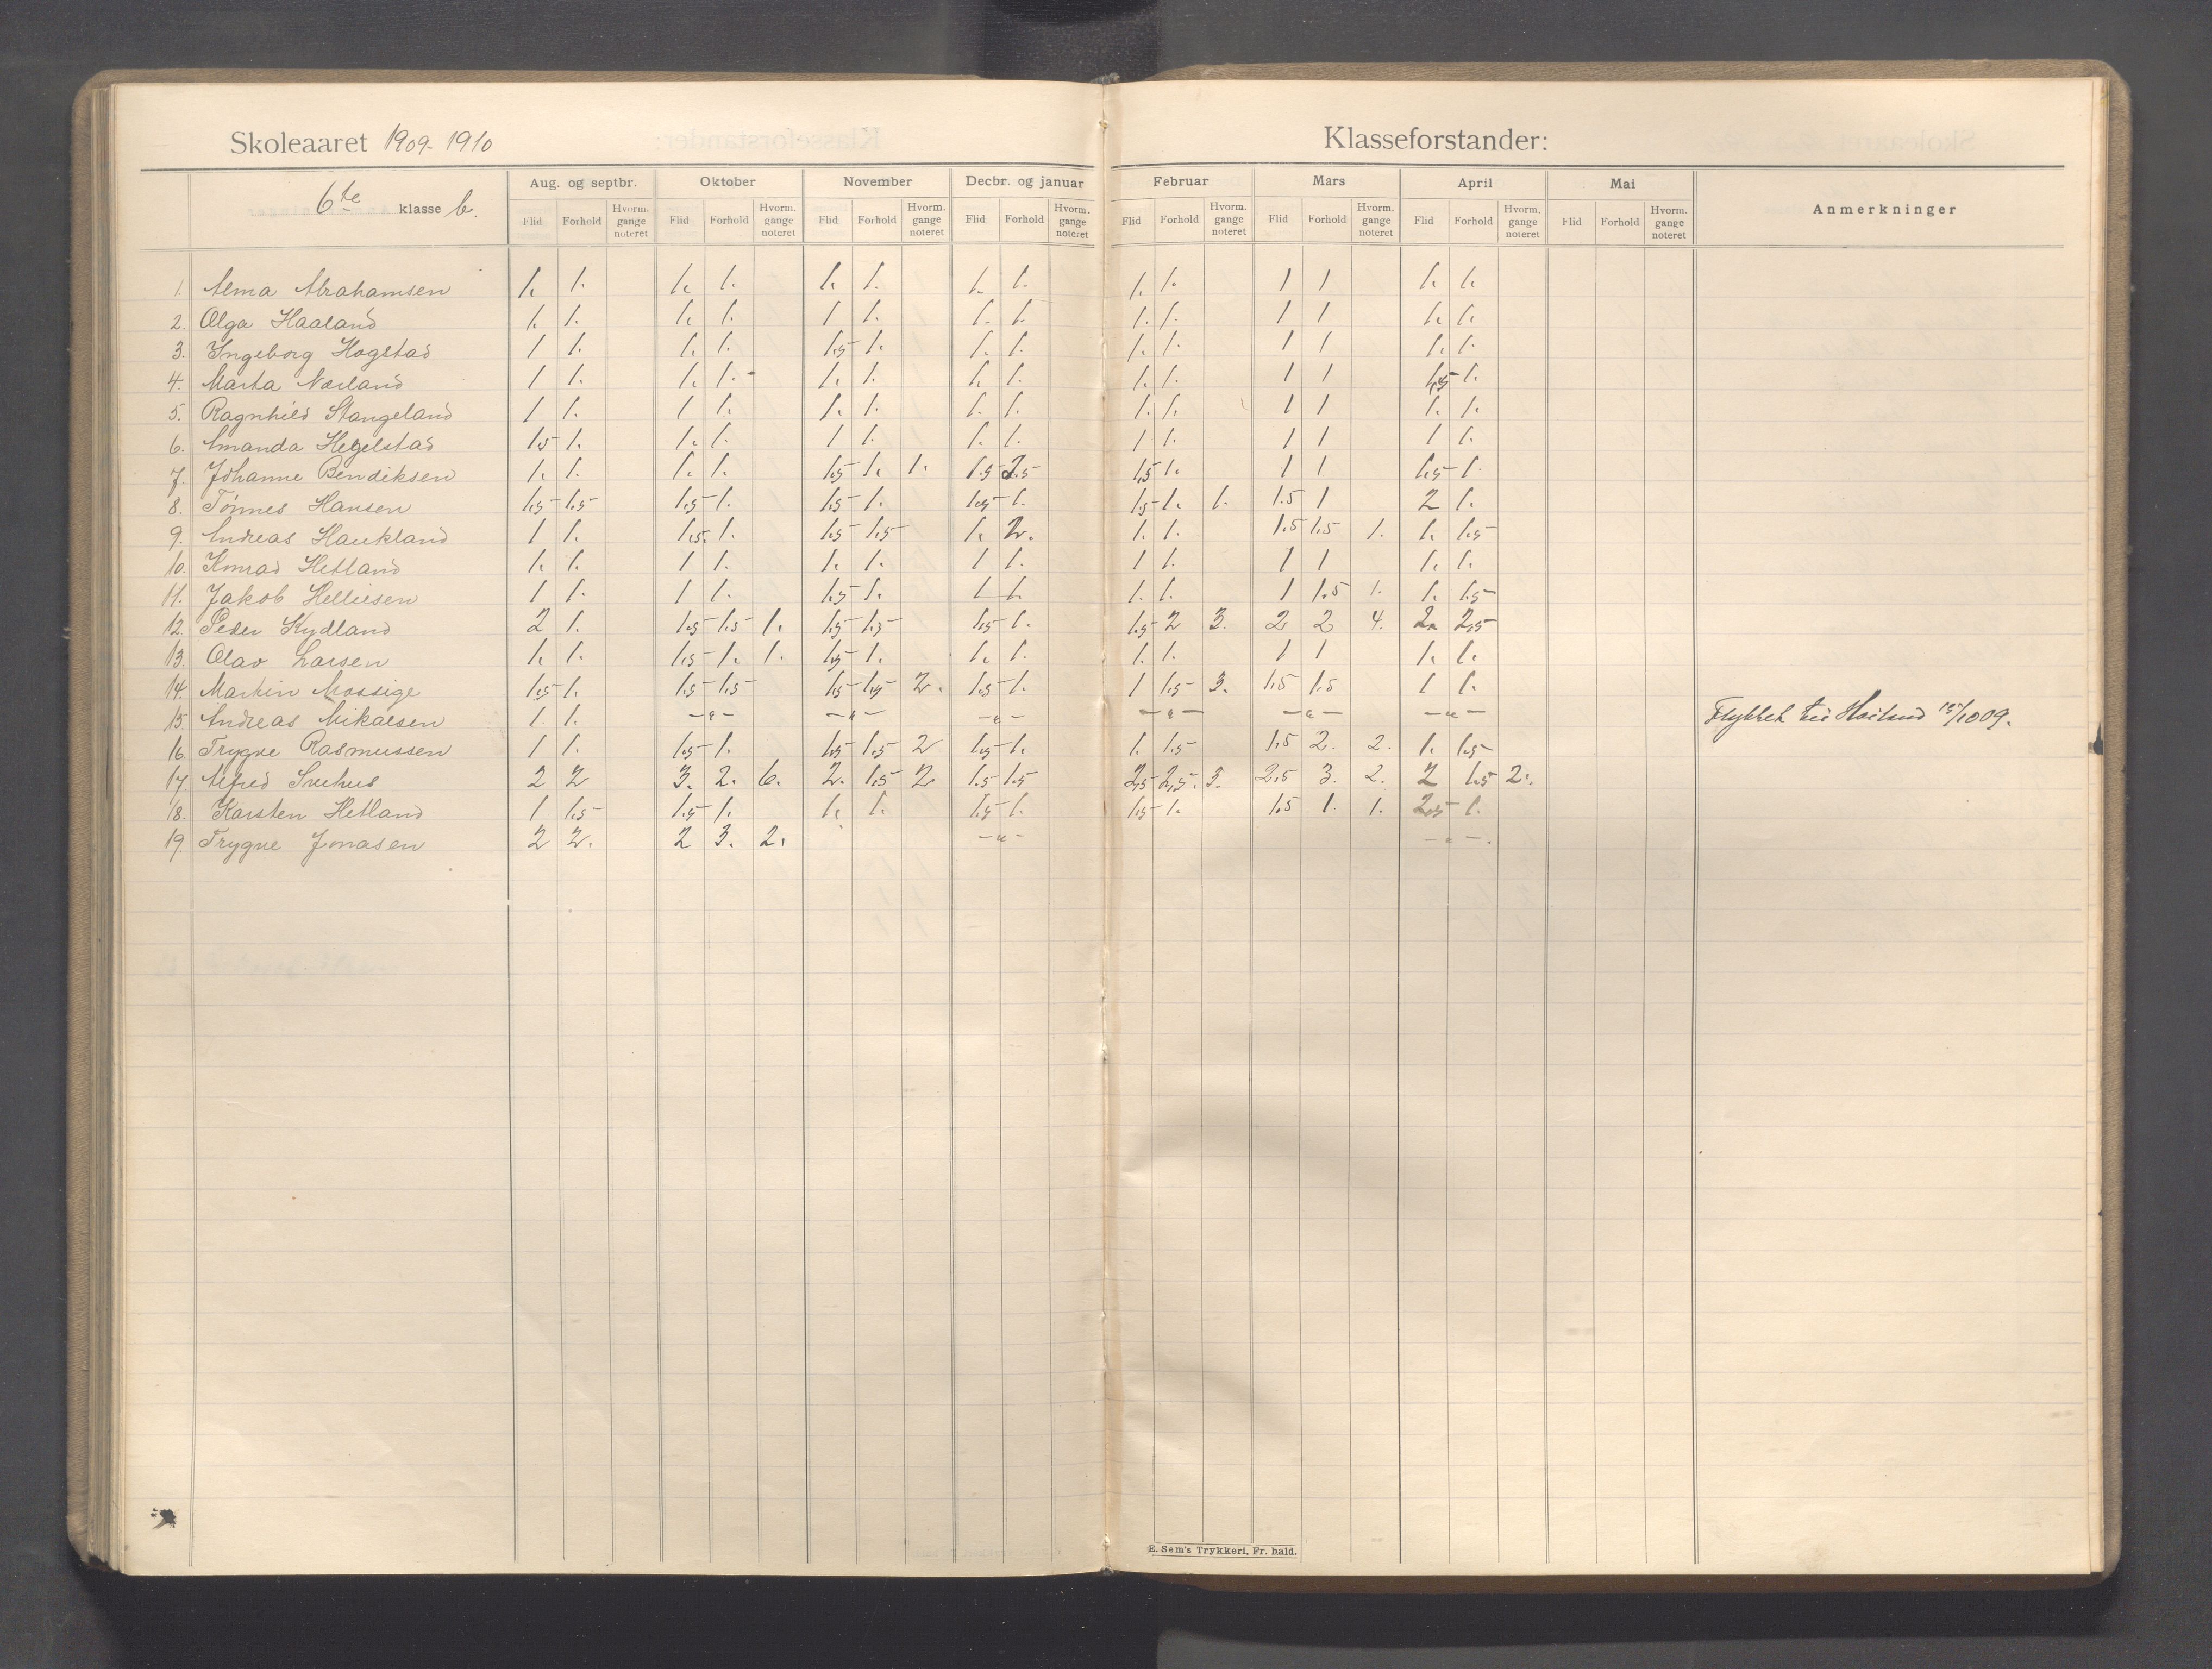 Skoleaaret 1909-1910 Klasseforstander:
6te klasse b.
Aug. og septbr. Oktober November Decbr. og januar Februar Mars April Mai Anmerkninger
Flid Forhold Hvorm. gange noteret Flid Forhold Hvorm. gange noteret Flid Forhold Hvorm. gange noteret Flid Forhold Hvorm. gange noteret Flid Forhold Hvorm. gange noteret Flid Forhold Hvorm. gange noteret Flid Forhold Hvorm. gange noteret Flid Forhold Hvorm. gange noteret
1. Alma Abrahamsen 1. 1. 1. 1. 1. 1. 1. 1. 1. 1. 1 1 1. 1.
2. Olga Haaland 1. 1. 1. 1. 1 1. 1. 1. 1. 1. 1 1 1. 1.
3. Ingeborg Hogstad 1 1. 1. 1. 1.5 1. 1. 1. 1. 1. 1 1 1. 1.
4. Marta Nærland 1 1. 1. 1. 1. 1. 1. 1. 1. 1. 1 1 1,5 1.
5. Ragnhild Stangeland 1 1. 1 1. 1. 1. 1. 1. 1. 1. 1 1 1. 1.
6. Amanda Hegelstad 1.5 1. 1. 1. 1 1. 1. 1. 1 1. 1 1 1 1.
7. Johanne Bendiksen 1. 1. 1. 1. 1.5 1. 1. 1.5 2.5 1.5 1. 1 1 1.5 1.
8. Tønnes Hansen 1.5 1.5 1.5 1. 1.5 1. 1.5 1. 1.5 1. 1. 1.5 1 2 1.
9. Andreas Haukland 1 1. 1.5. 1. 1.5 1.5 1. 2. 1. 1. 1.5 1.5 1. 1. 1.5
10. Konrad Hetland 1. 1. 1 1. 1. 1. 1 1. 1 1. 1 1 1. 1.
11. Jakob Helliesen 1 1. 1 1. 1.5 1. 1 1. 1. 1. 1 1.5 1. 1. 1.5
12. Peder Kydland 2 1. 1.5 1.5 1. 1.5 1.5 1.5 1. 1.5 2 3. 2 2 4. 2. 2.5
13. Olav Larsen 1. 1. 1.5 1. 1. 1.5 1. 1. 1. 1. 1. 1 1 1. 1.
14. Martin Mossige 1.5 1. 1.5 1.5 1.5 1.5 2. 1.5 1. 1 1.5 3. 1.5 1.5 1 1.
15. Andreas Mikalsen 1. 1. -"- -"- -"- -"- -"- -"- Flyttet til 15/10 09.
16. Trygve Rasmussen 1 1. 1.5 1. 1.5 1.5 2 1.5 1. 1. 1.5 1.5 2. 2. 1. 1.5
17. Alfred 2 2 3. 2. 6. 2. 1.5 2 1.5 1.5 2.5 2.5. 3. 2.5 3. 2. 2 1.5 2.
18. Karsten Hetland 1 1.5 1.5 1. 1. 1. 1.5 1. 1.5 1. 1.5 1. 1. 2.5 1.
19. Trygve Jonasen 2 2. 2 3. 2. -"- -"-.
E. Sem's Trykkeri, Fr. hald.